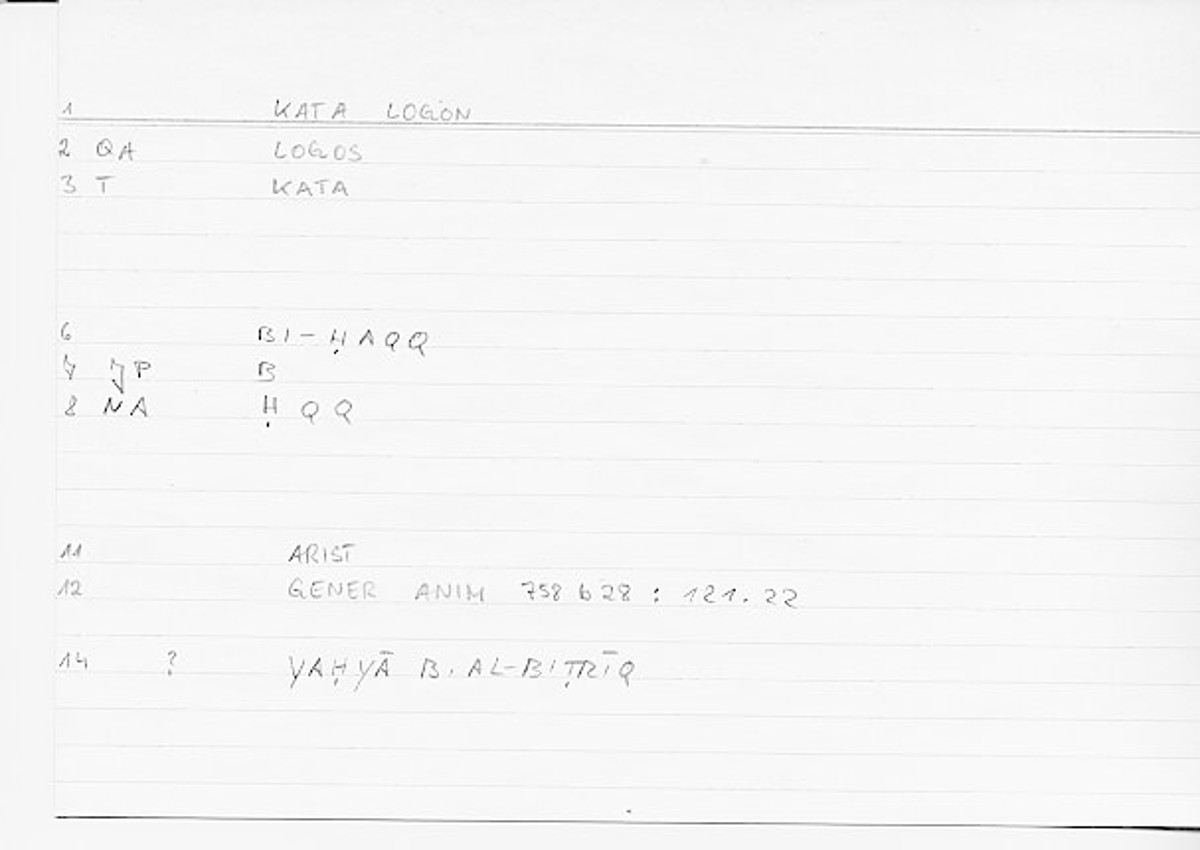 1 KATA LOGON
2 QA LOGOS
3 T KATA
6 BI-ḤAQQ
7 JP B
8 NA Ḥ QQ
11 ARIST
12 GENER ANIM 758 b 28 : 121.22
14 ? YAḤYĀ B. AL-BIṬRĪQ